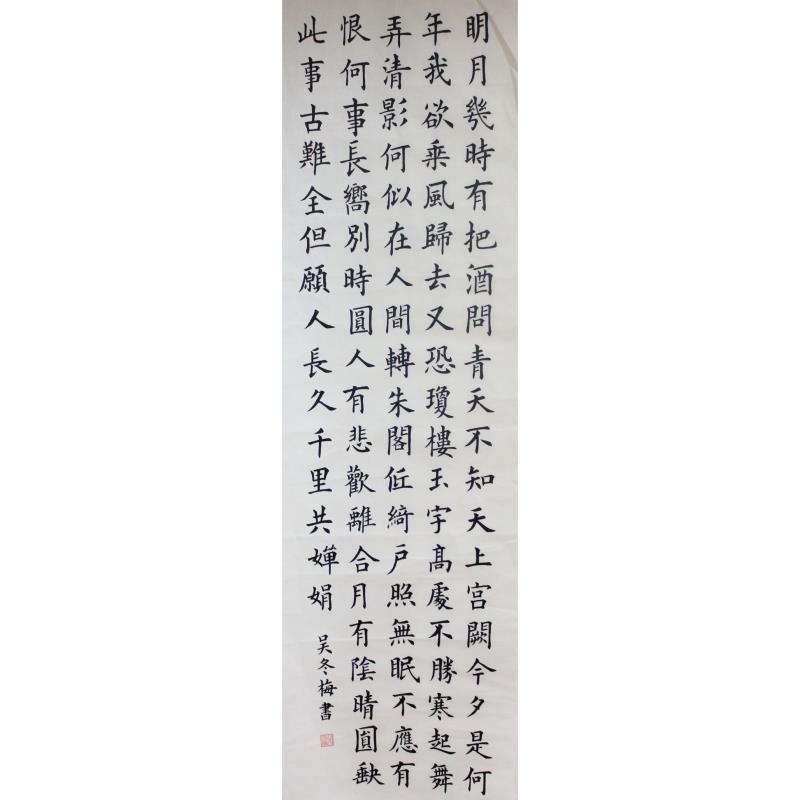 眀月幾時有把酒問青天不知天上宮闕今夕是何
年我欲乘風歸去又恐瓊樓玉宇髙處不勝寒起舞
弄清影何似在人間轉朱閣低綺戶照無眠不應有
恨何事長嚮別時圓人有悲歡離合月有陰晴圓缺
此事古難全但願人長久千里共嬋娟
吳冬梅書